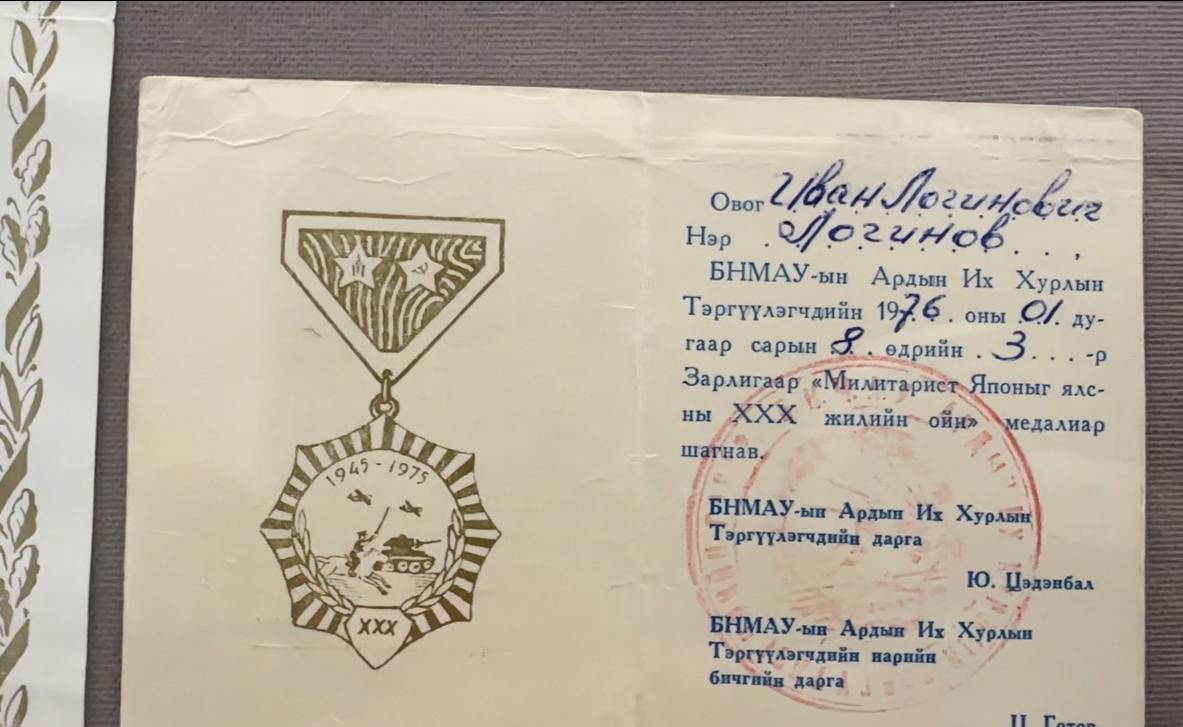 1945-1975
XXX
Овог Иван Логинович
Нэр Логинов
БНМАУ-ын Ардын Их Хурлын
Тэргүүлэгчдийн 1976. оны 01. ду-
гаар сарын 8. өдрийн 3...-р
Зарлигаар «Милитарист Японыг ялс-
ны XXX жилийн ойн» медалиар
шагнав.
БНМАУ-ын Ардын Их Хурлын
Тэргүүлэгчдийн дарга
Ю. Цэдэнбал
БНМАУ-ын Ардын Их Хурлын
Тэргүүлэгчдийн нарийн
бичгийн дарга